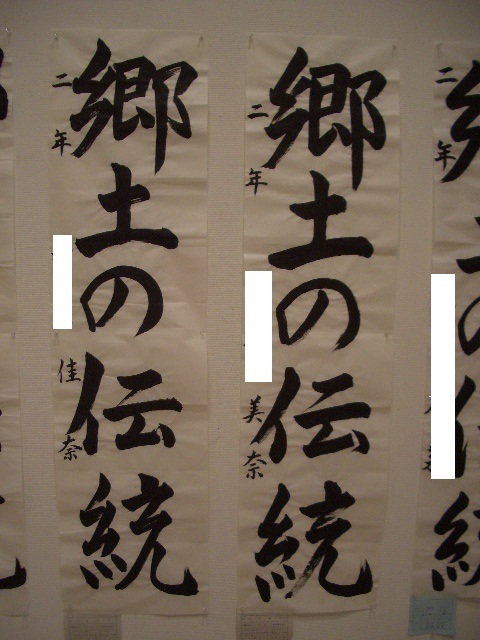 郷土の伝統
二年
美奈
郷土の伝統
二年
佳奈
二年